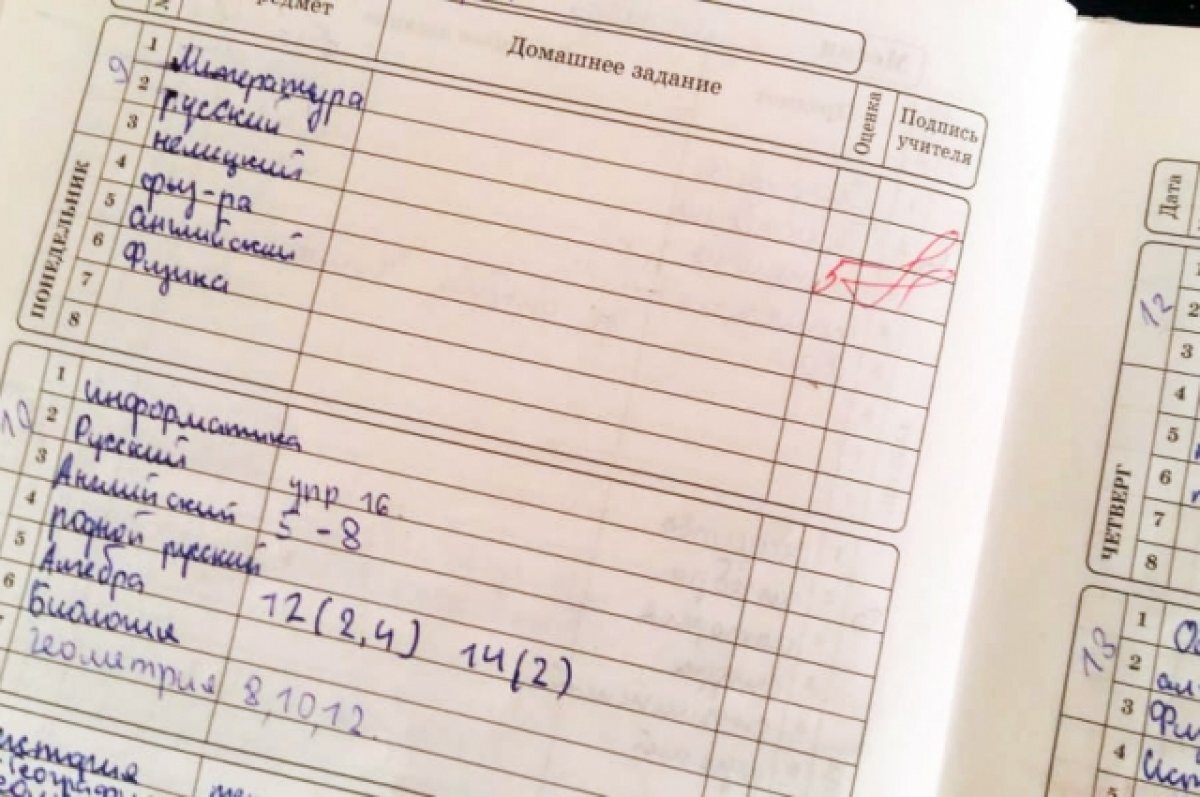 № предмет Домашнее задание Оценка Подпись учителя
ПОНЕДЕЛЬНИК
9
1 Литература
2 русский
3 немецкий
4 физ-ра
5 английский
6 Физика
7
8
10
1 информатика
2 Русский упр 16.
3 Английский 5-8
4 родной русский
5 Алгебра 12(2,4) 14(2)
6 Биология
геометрия 8,10,12.
5
Дата
12
ЧЕТВЕРГ
1
2
3
4
5
6
7
8
13
1
2
3
4
5